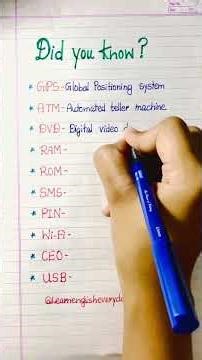 Did you know?
* GPS- Global Positioning System
* ATM- Automated teller machine
* DVD- Digital video d
* RAM-
* ROM-
* SMS-
* PIN-
* Wi-Fi-
* CEO-
* USB-